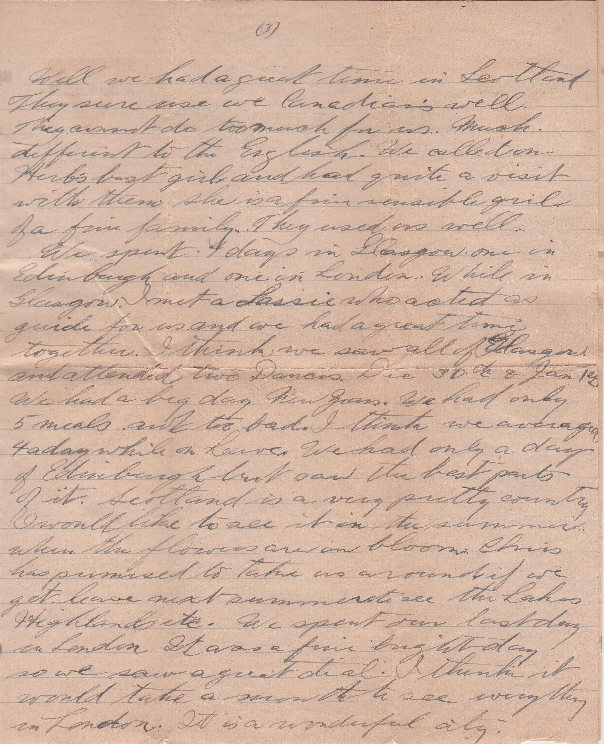 (3)
Well we had a great time in Scotland
They sure use we Canadians well.
They cannot do too much for us. Much
different to the English. We called on
Herbs best girl and had quite a visit
with them she is a fine sensible gril
of a fine family. They used us well.
We spent 4 days in Glasgow one in
Edinburgh and one in London. While in
Glasgow I met a Lassie who acted as
guide for us and we had a great time
together. I think we saw all of Glasgow
and attended two Dances Dec 30th & Jan 1st
We had a big day New Years. We had only
5 meals not too bad. I think we averaged
4 a day while on Leave. We had only a day
of Edinburgh but saw the best parts
of it. Scotland is a very pretty country
I would like to see it in the summer
when the flowers are in bloom. Chris
has promised to take us around if we
get leave next summer to see the Lakes
Highlands etc. We spent our last day
in London It was a fine bright day
so we saw a great deal. I think it
would take a month to see everything
in London. It is a wonderful city.